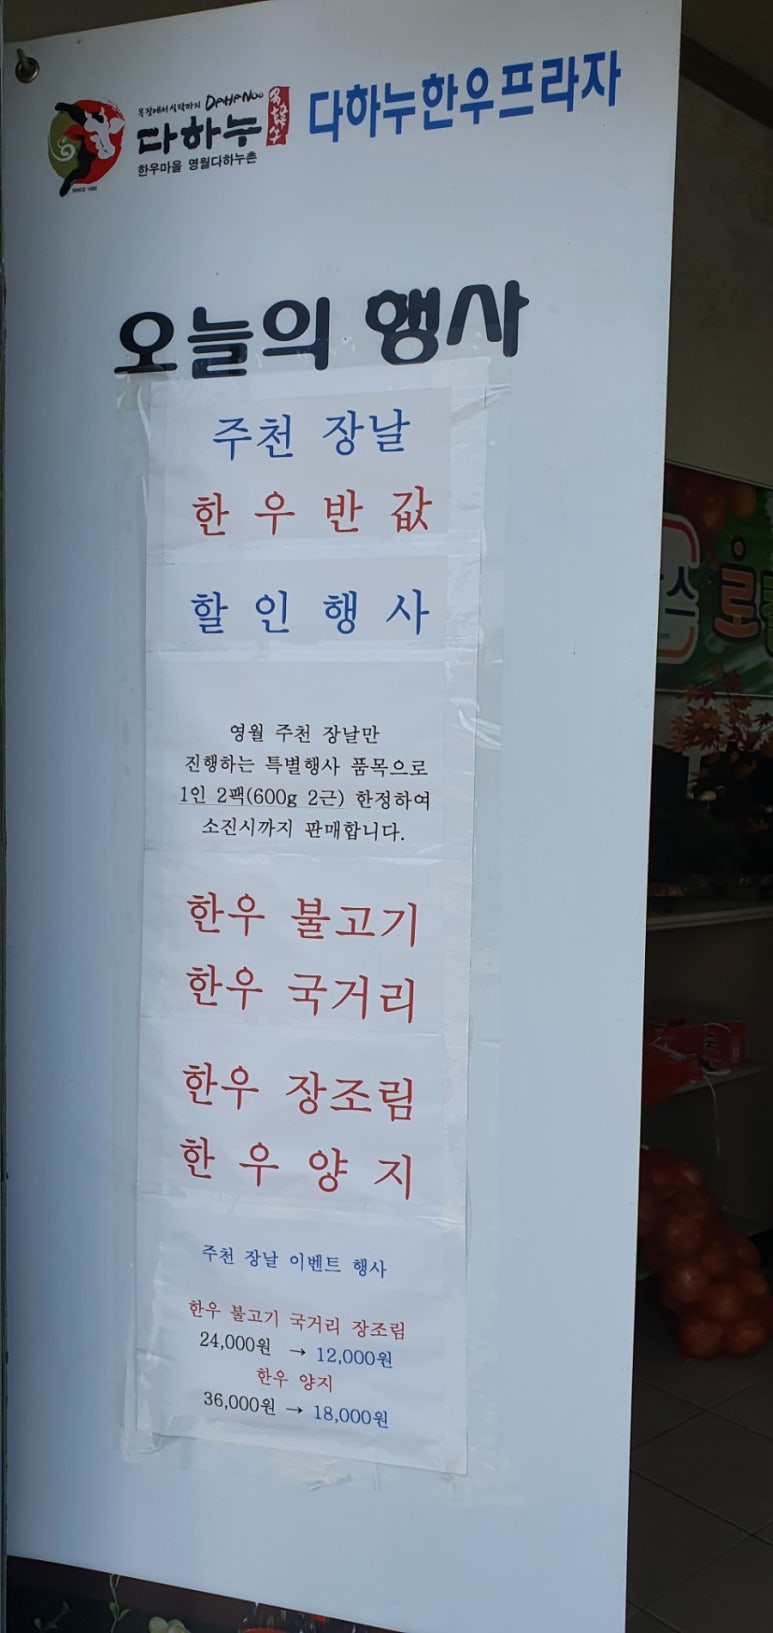 목장에서 식탁까지 DAHANOO
다하누
한우마을 영월다하누촌
SINCE 1955
다하누한우프라자
오늘의 행사
주천 장날
한 우 반 값
할 인 행 사
영월 주천 장날만
진행하는 특별행사 품목으로
1인 2팩(600g 2근) 한정하여
소진시까지 판매합니다.
한우 불고기
한우 국거리
한우 장조림
한 우 양 지
주천 장날 이벤트 행사
한우 불고기 국거리 장조림
24,000원 → 12,000원
한우 양지
36,000원 → 18,000원
스
로